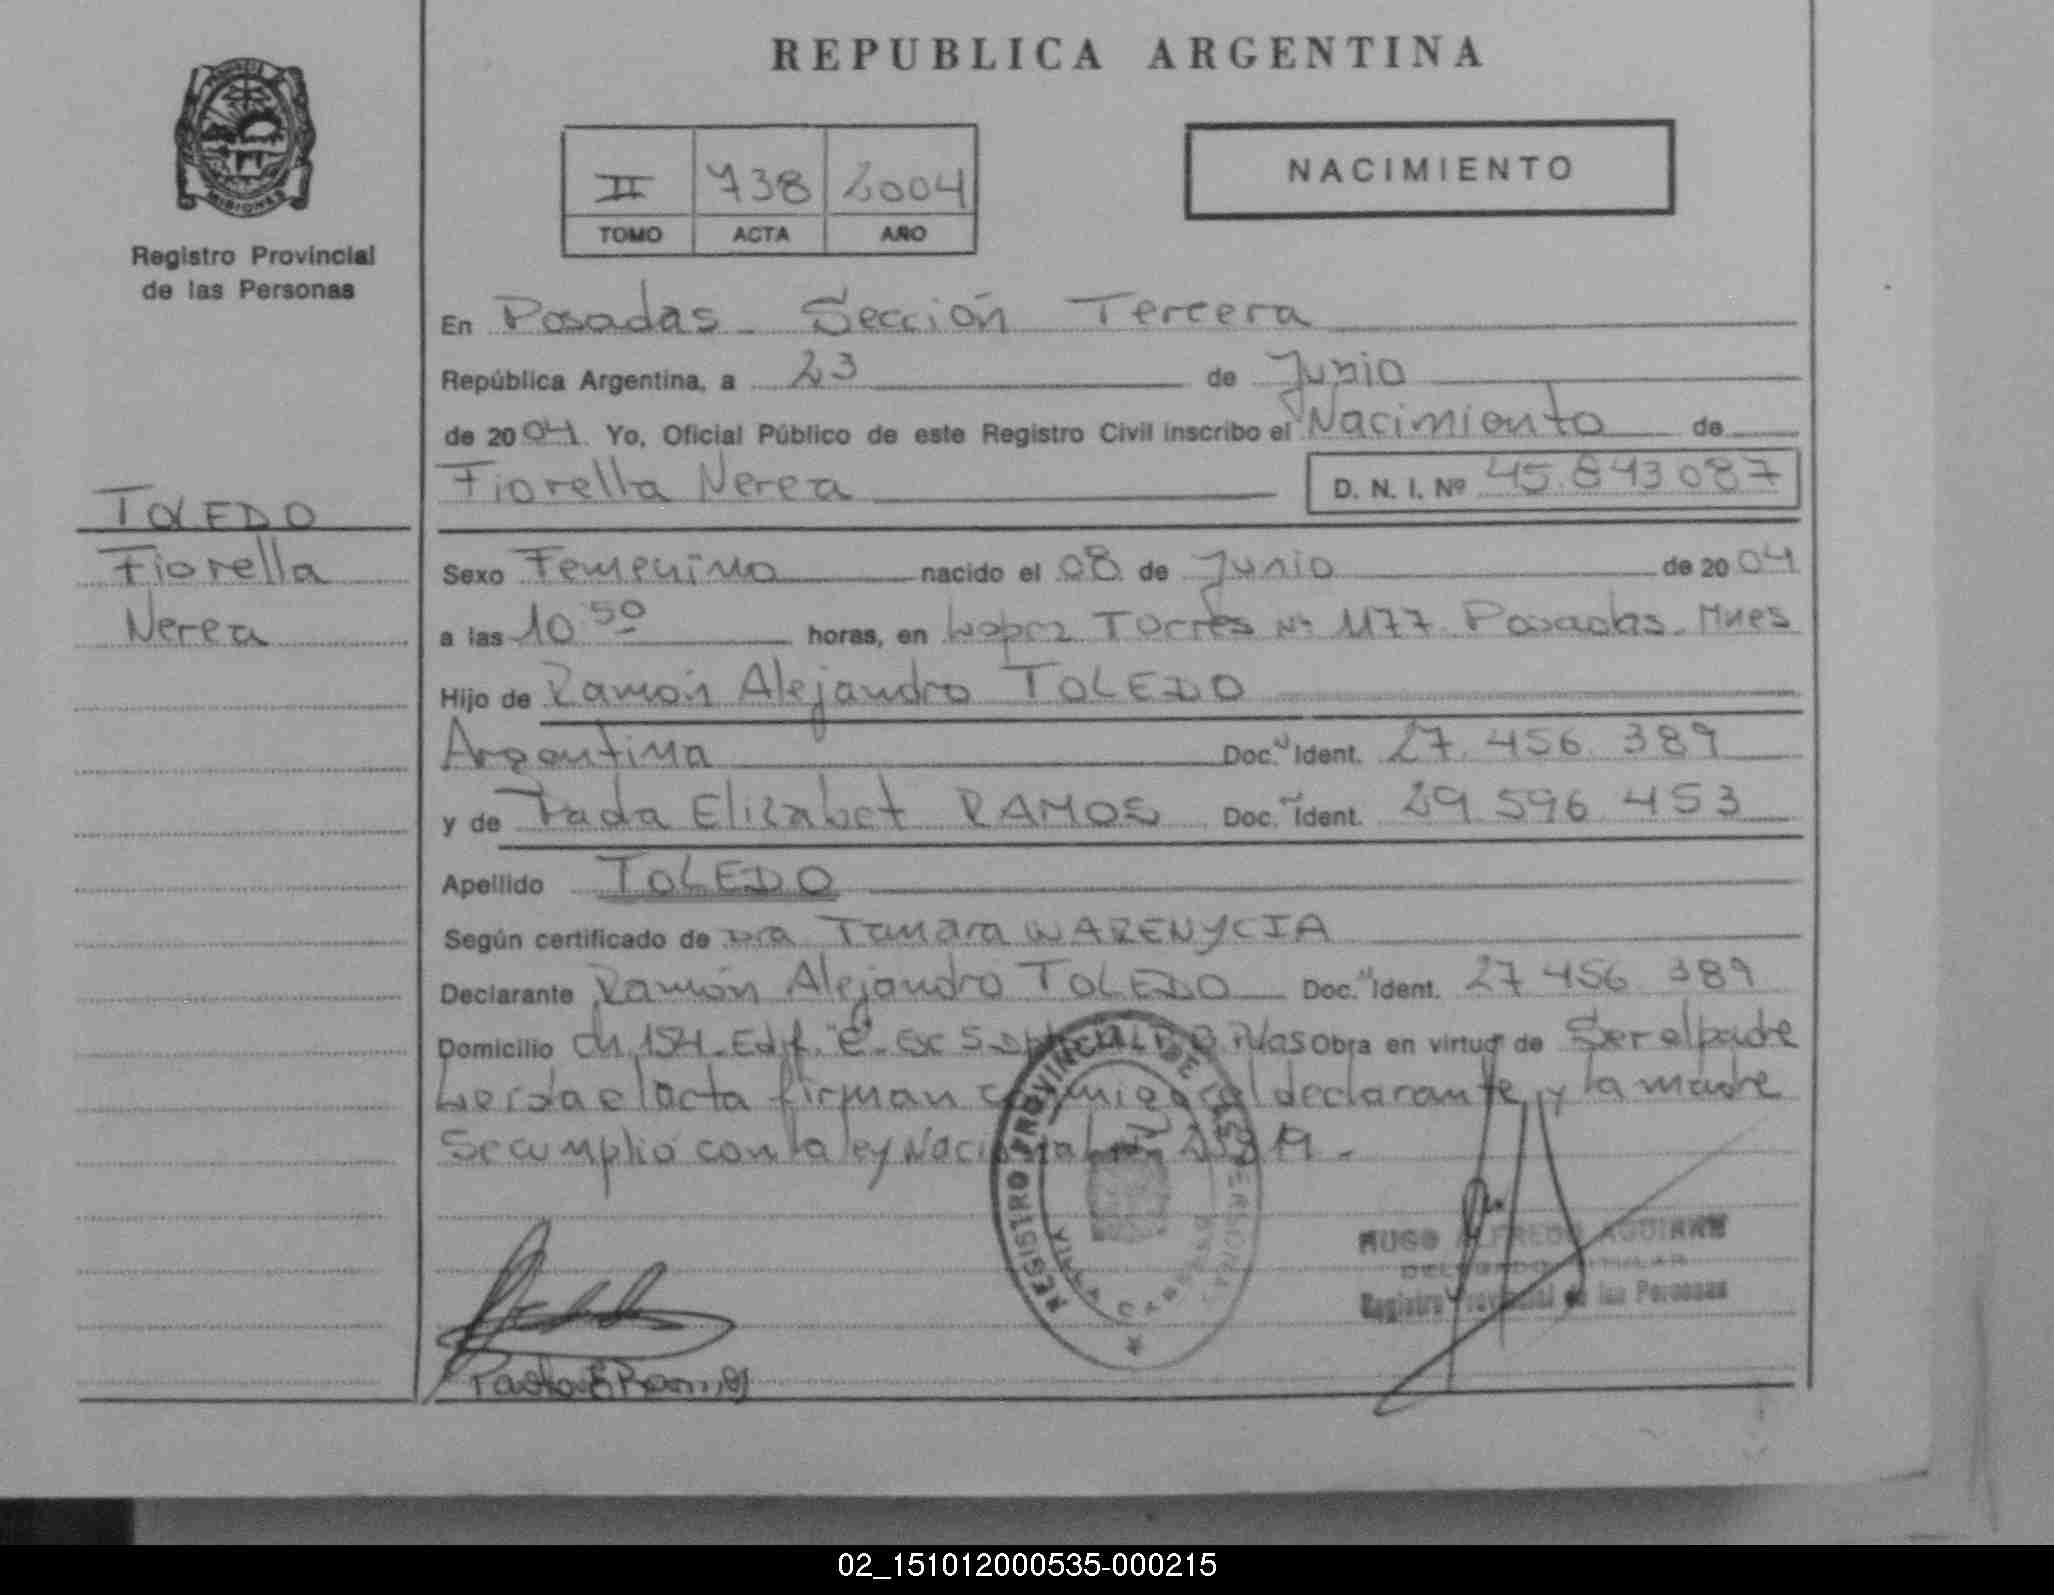 REPUBLICA ARGENTINA
MISIONES
Registro Provincial
de las Personas
II 738 2004
TOMO ACTA AÑO
NACIMIENTO
En Posadas - Sección Tercera
República Argentina, a 23 de Junio
de 2004. Yo, Oficial Público de este Registro Civil inscribo el Nacimiento de
Fiorella Nerea D. N. I. Nº 45.843087
TOLEDO
Fiorella
Nerea
Sexo Femenino nacido el 08 de Junio de 2004
a las 10 50 horas, en Lopez Torres Nº 1177 Posadas. Mnes
Hijo de Ramón Alejandro TOLEDO
Argentina Doc. Ident. 27.456.389
y de Elizabet RAMOS Doc. Ident. 29.596.453
Apellido TOLEDO
Según certificado de Dra Tamara WARENYCIA
Declarante Ramón Alejandro TOLEDO Doc. Ident. 27 456 389
Domicilio Ch. 154. Edif. "C". Pdas Obra en virtud de Ser el padre
Leida el acta firman conmigo el declarante y la madre
Se cumplió con la ley Nacional
REGISTRO PROVINCIAL DE LAS PERSONAS
HUGO ALFREDO AGUIRRE
DELEGADO TITULAR
Registro Provincial de las Personas
02_151012000535-000215